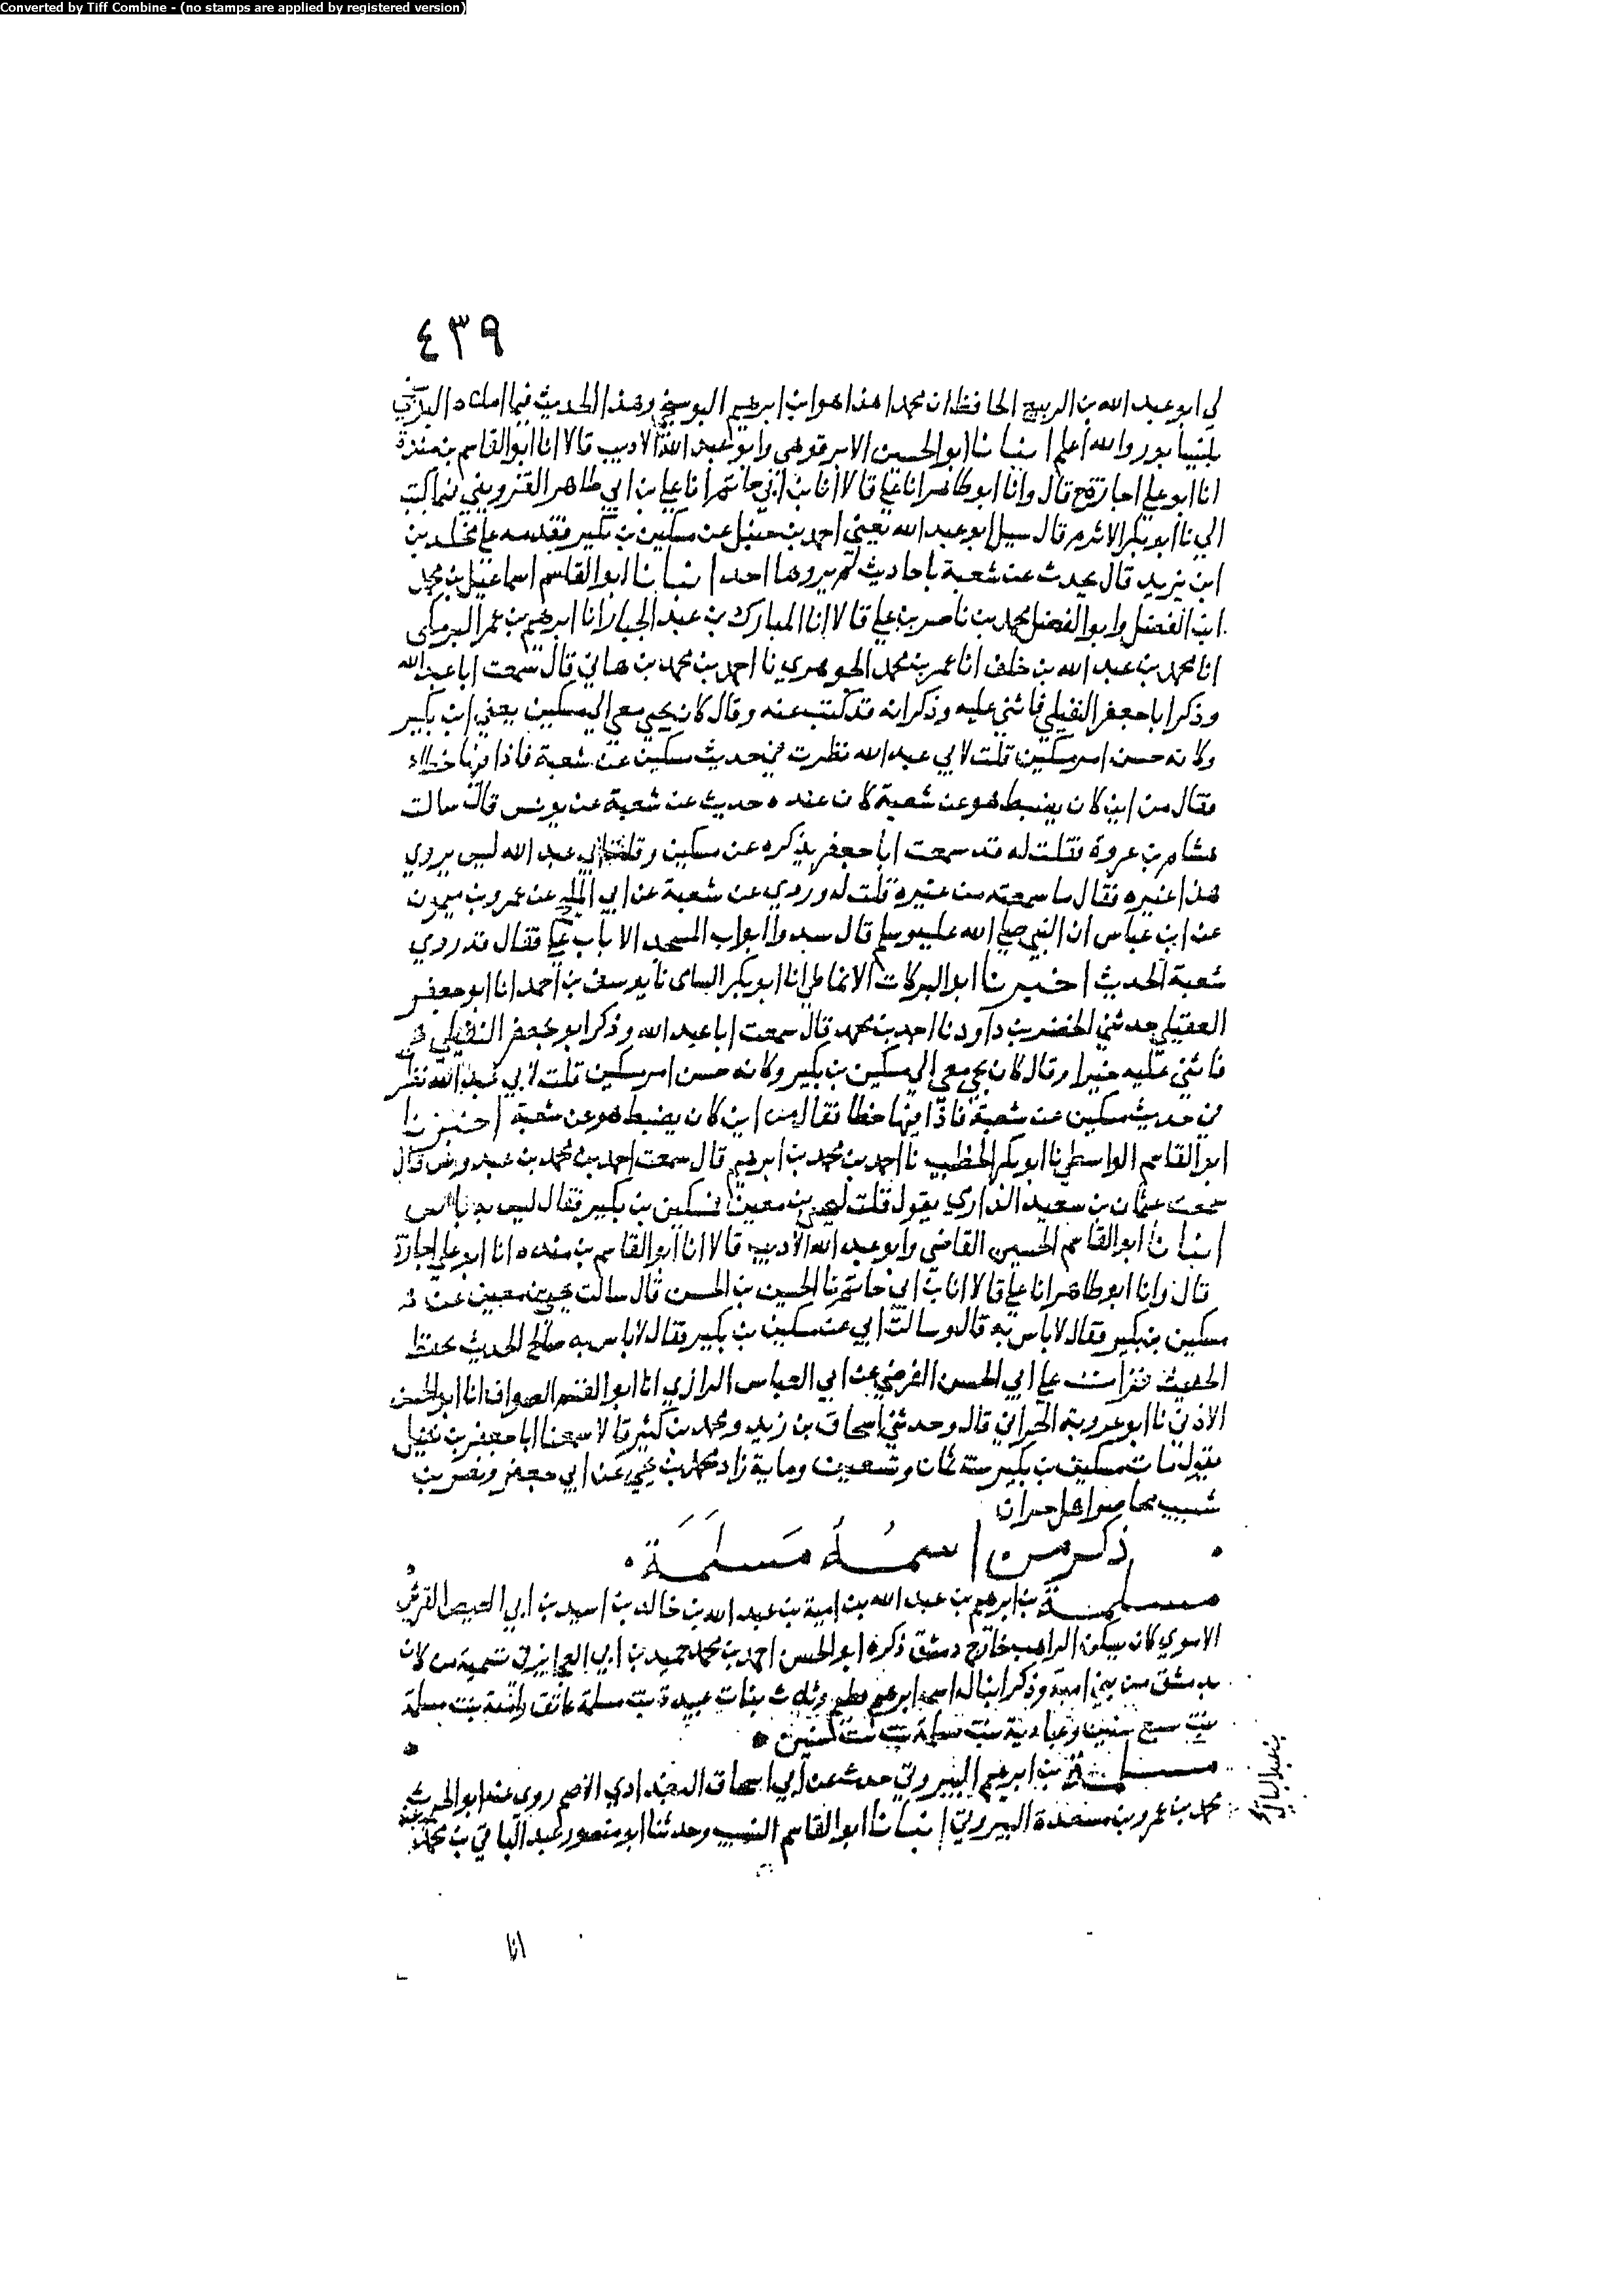 Converted by Tiff Combine - (no stamps are applied by registered version)
٤٣٩
لي ابو عبد الله بن الربيع الحافظ ان محمدا هذا هو ابن ابرهيم البوسنجي وهذا الحديث فيما املاه البرقي
بنيسابور والله اعلم انبانا ابو الحسين الابرقوهي وابو عبد الله الاديب قالا انا ابو القاسم بن مندة
انا ابو علي اجازة ح قال وانا ابو طاهر انا علي قالا انا بن ابي حاتم انا علي بن ابي طاهر القزويني فيما كتب
الي نا ابو بكر الاثرم قال سيل ابو عبد الله يعني احمد بن حنبل عن مسكين بن بكير فقدمه علي مخلد بن
ابن يزيد قال يحدث عن شعبة باحاديث لم يروها احد انبانا ابو القاسم اسماعيل بن محمد
ابن الفضل وابو الفضل محمد بن ناصر بن علي قالا انا المبارك بن عبد الجبار انا ابرهيم بن عمر البرمكي
انا محمد بن عبد الله بن خلف انا عمر بن محمد الجوهري نا احمد بن محمد بن هاني قال سمعت ابا عبد الله
وذكر ابا جعفر النفيلي فاثني عليه وذكر انه قد كتب عنه وقال كان يجي معي الي مسكين يعني ابن بكير
وكانه حسن امر مسكين قلت لابي عبد الله نظرت في حديث مسكين عن شعبة فاذا فيها خطاء
فقال من اين كان يضبط هو عن شعبة كان عنده حديث عن شعبة عن يونس قال سالت
هشام بن عروة فقلت له قد سمعت ابا جعفر يذكره عن مسكين وقلت لابي عبد الله ليس يروي
هذا غيره فقال ما سمعته من غيره قلت له وروي عن شعبة عن ابي المليح عن عمرو بن ميمون
عن ابن عباس ان النبي صلي الله عليه وسلم قال سدوا ابواب المسجد الا باب علي فقال قد روي
شعبة الحديث اخبرنا ابو البركات الانماطي انا ابو بكر الشامي نا يوسف بن احمد انا ابو جعفر
العقيلي حدثني الخضر بن داود نا احمد بن محمد قال سمعت ابا عبد الله وذكر ابو جعفر النفيلي
فاثني عليه خيرا وقال كان يجي معي الي مسكين بن بكير وكانه حسن امر مسكين قلت لابي عبد الله نظر
في حديث مسكين عن شعبة فاذا فيها خطا فقال من اين كان يضبط هو عن شعبة اخبرنا
ابو القاسم الواسطي نا ابو بكر الخطيب نا احمد بن محمد بن ابرهيم قال سمعت احمد بن محمد بن عبدوس قال
سمعت عثمان بن سعيد الدارمي يقول قلت ليحيي بن معين فمسكين بن بكير فقال ليس به باس
انبانا ابو القاسم الحسين القاضي وابو عبد الله الاديب قالا انا ابو القاسم بن منده انا ابو علي اجازة
قال وانا ابو طاهر انا علي قالا انا بن ابي حاتم نا الحسين بن الحسن قال سالت يحيي بن معين عن
مسكين بن بكير فقال لا باس به قال وسالت ابي عن مسكين بن بكير فقال لا باس به صالح الحديث يحفظ
الحديث قرات علي ابي الحسن الفرضي عن ابي العباس الرازي انا ابو القسم الصواف انا ابو الحسن
الاذني نا ابو عروبة الحراني قال وحدثني اسحاق بن زيد ومحمد بن كثير قالا سمعنا ابا جعفر بن نفيل
يقول مات مسكين بن بكير سنة ثمان وتسعين وماية زاد محمد بن يحيي عن ابي جعفر ونصر بن
شبيب محاصر اهل حران
ذكر من اسمه مسلمة
مسلمة بن ابرهيم بن عبد الله بن امية بن عبد الله بن خالد بن اسيد بن ابي العيص القرشي
الاموي كان يسكن الراهب خارج دمشق ذكره ابو الحسن احمد بن محمد حميد بن ابي العجايز في تسمية من كان
بدمشق من بني امية وذكر ابنا له اسمه ابرهيم فطيم وثلاث بنات عبيدة بنت مسلمة عاتق وامنة بنت مسلمة
بنت سبع سنين وعبادية بنت مسلمة بنت ست سنين
مسلمة بن ابرهيم البيروتي حدث عن ابي اسحاق البغدادي الاصم روي عنه ابو الحرث
محمد بن عمرو بن مسعدة البيروتي انبانا ابو القاسم النسيب وحدثنا ابو منصور عبد الباقي بن محمد
بن عبد الباقي
انا